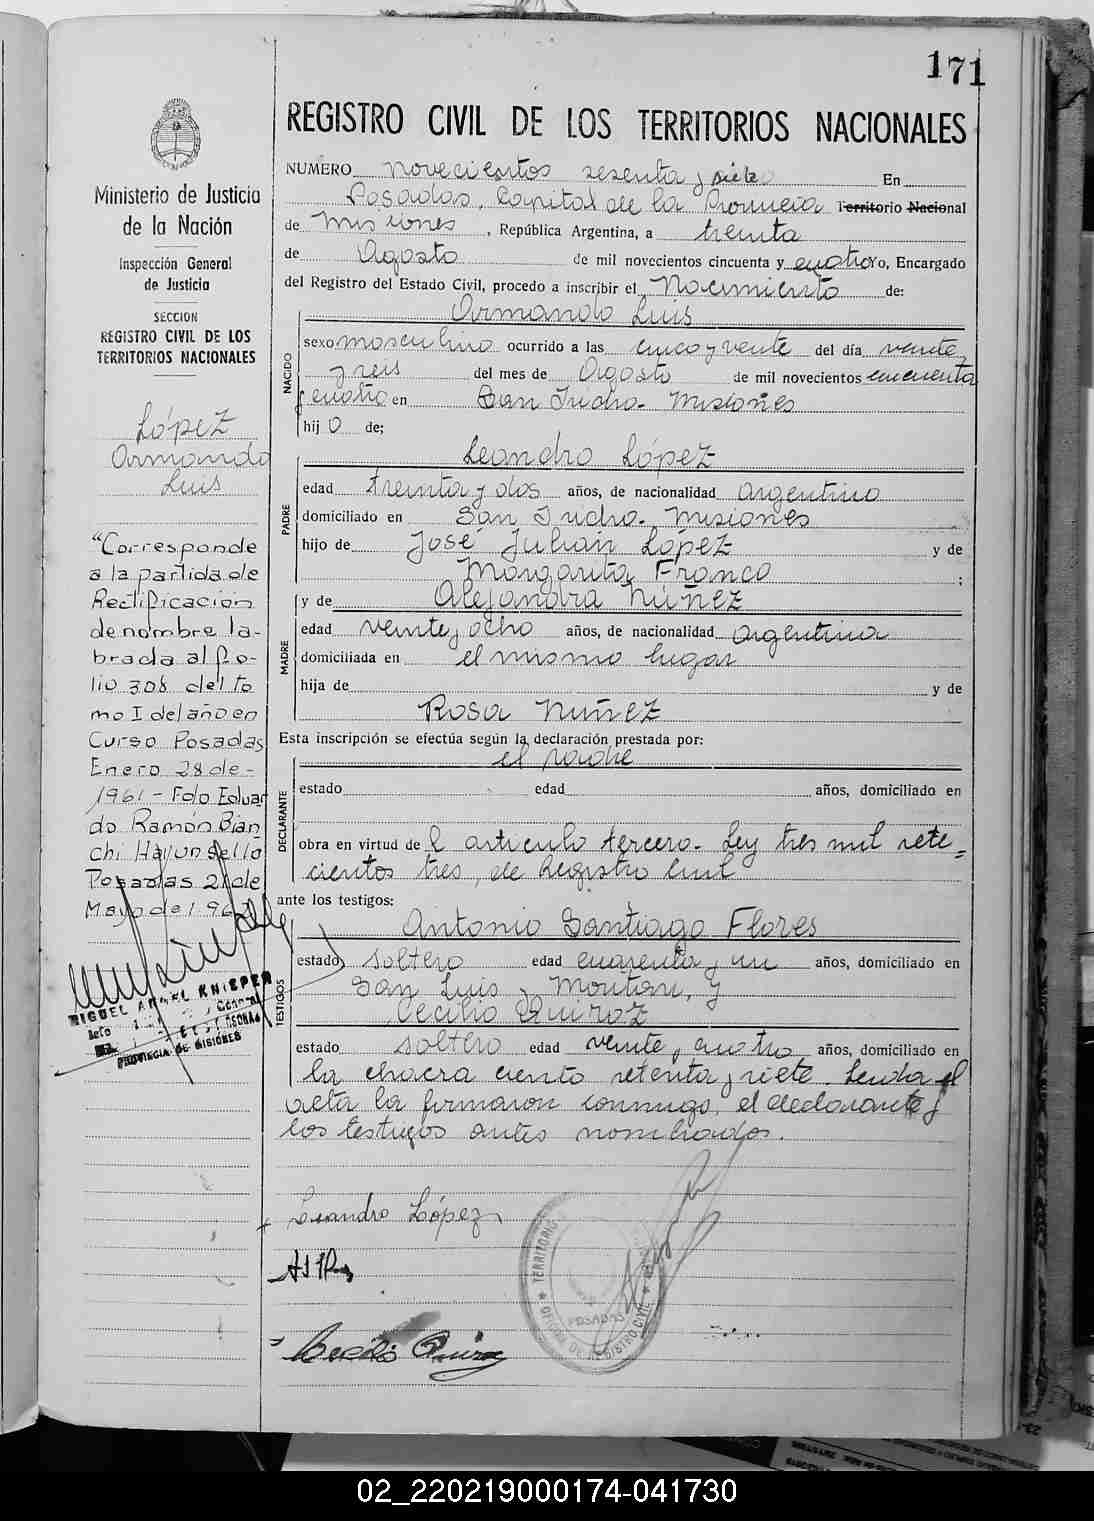 171
REGISTRO CIVIL DE LOS TERRITORIOS NACIONALES
NUMERO novecientos sesenta y siete En
Posadas, Capital de la Provincia Territorio Nacional
de Misiones, República Argentina, a treinta
de Agosto de mil novecientos cincuenta y cuatro, Encargado
del Registro del Estado Civil, procedo a inscribir el Nacimiento de:
NACIDO
Armando Luis
sexo masculino ocurrido a las cinco y veinte del día veinte
y seis del mes de Agosto de mil novecientos cincuenta
y cuatro en San Isidro- Misiones
hijo de;
PADRE
Leandro López
edad treinta y dos años, de nacionalidad argentino
domiciliado en San Isidro- Misiones
hijo de José Julián López y de
Margarita Franco ;
MADRE
y de Alejandra Núñez
edad veinte y ocho años, de nacionalidad argentina
domiciliada en el mismo lugar
hija de y de
Rosa Núñez
Esta inscripción se efectúa según la declaración prestada por:
DECLARANTE
el padre
estado edad años, domiciliado en
obra en virtud del artículo tercero- Ley tres mil sete=
cientos tres, de Registro Civil
ante los testigos:
TESTIGOS
Antonio Santiago Flores
estado soltero edad cuarenta y un años, domiciliado en
San Luis y
Cecilio Quiroz
estado soltero edad veinte y cuatro años, domiciliado en
la chacra ciento setenta y siete. Leída el
acta la firmaron conmigo, el declarante y
los testigos antes nombrados.
Leandro López
Cecilio Quiroz
TERRITORIO
POSADAS
OFICINA DE REGISTRO CIVIL
Ministerio de Justicia
de la Nación
Inspección General
de Justicia
SECCION
REGISTRO CIVIL DE LOS
TERRITORIOS NACIONALES
López
Armando
Luis
"Corresponde
a la partida de
Rectificación
de nombre la-
brada al fo-
lio 308 del to
mo I del año en
Curso Posadas
Enero 28 de -
1961 - Fdo Eduar
do Ramón Bian
chi Hay un sello
Posadas 21 de
Mayo de 196
MIGUEL ANGEL KNIEPER
PROVINCIA DE MISIONES
02_220219000174-041730